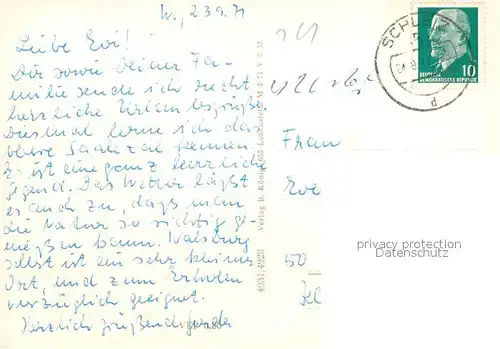 W., 23.9.71
Liebe Evi!
Dir sowie Deiner Fa-
milie sende ich recht
herrliche Urlaubsgrüße.
Diesmal lerne ich das
obere Saaletal kennen.
Es ist eine ganz herrliche
Gegend. Das Wetter läßt
es auch zu, dass man
die Natur so richtig ge-
nießen kann. Walsburg
selbst ist ein sehr kleiner
Ort, und zum Erholen
vorzüglich geeignet.
Herzlich grüßend
4931/4928 Verlag B. König, 685 Lobenstein M 2 71 V 5 35
SCHL
DEUTSCHE
DEMOKRATISCHE REPUBLIK 10
d
Frau
Eve
50
privacy protection
Datenschutz